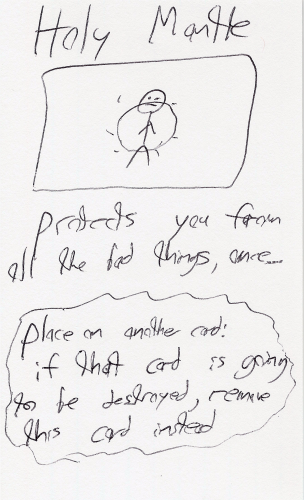 Holy Mantle
Protects you from
all the bad things, once...
Place on another card:
if that card is going
to be destroyed, remove
this card instead